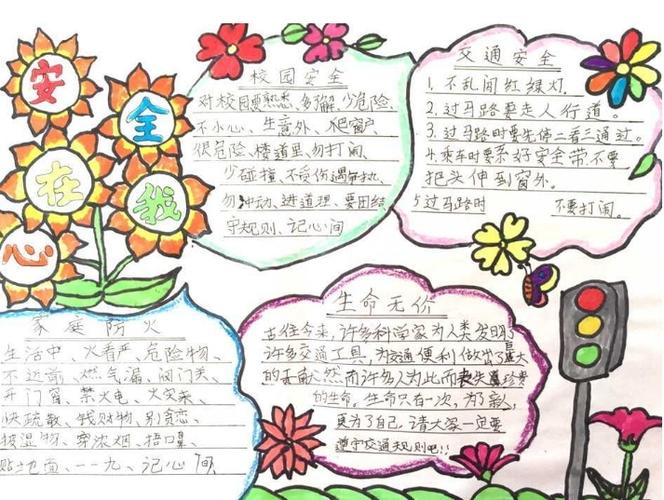 安
全
在
我
心
校园安全
对校园要熟悉、多了解、少危险、
不小心、生意外、爬窗户
很危险、楼道里、勿打闹、
少碰撞、不受伤遇事
勿冲动、进道理、要团结
守规则、记心间
交通安全
1.不乱闯红绿灯.
2.过马路要走人行道。
3.过马路时要先停二看三通过。
4.乘车时要系好安全带不要
把头伸到窗外。
5过马路时 不要打闹。
家庭防火
生活中、火看严、危险物、
不近前、燃气漏、阀门关、
开门窗、禁火电、火突来、
快疏散、钱财物、别贪恋、
披湿物、穿浓烟、捂口鼻
贴地面、一一九、记心间
生命无价
古往今来,许多科学家为人类发明了
许多交通工具,为交通便利做出了巨大
的贡献然而许多人为此而丧失最珍贵
的生命。生命只有一次,为了家人
更为了自己,请大家一定要
遵守交通规则吧!!